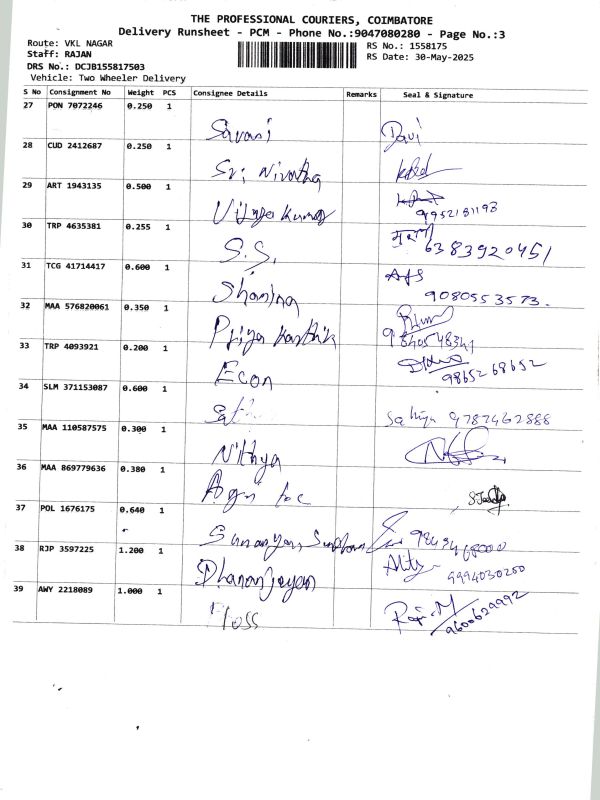 THE PROFESSIONAL COURIERS, COIMBATORE
Delivery Runsheet - PCM - Phone No.:9047080280 - Page No.:3
Route: VKL NAGAR
RS No.: 1558175
Staff: RAJAN
RS Date: 30-May-2025
DRS No.: DCJB155817503
Vehicle: Two Wheeler Delivery
S No Consignment No Weight PCS Consignee Details Remarks Seal & Signature
27 PON 7072246 0.250 1
28 CUD 2412687 0.250 1
29 ART 1943135 0.500 1
Vijaya Kumar 9952181198
30 TRP 4635381 0.255 1
S.S. 6383920451
31 TCG 41714417 0.600 1
9080553573.
32 MAA 576820061 0.350 1
Priya Karthik
33 TRP 4093921 0.200 1
Econ 9865268652
34 SLM 371153087 0.600 1
Sathiya 9787462888
35 MAA 110587575 0.300 1
Nithya
36 MAA 869779636 0.380 1
37 POL 1676175 0.640 1
38 RJP 3597225 1.200 1
Dhananjayan 9994030250
39 AWY 2218089 1.000 1
9600629992